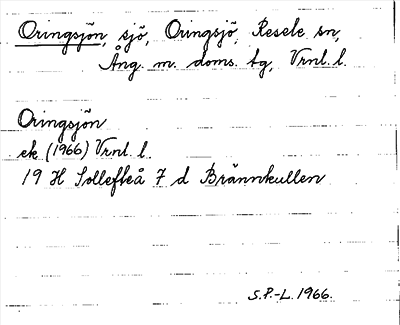 Oringsjön, sjö, Oringsjö, Resele sn,
Ång. m. doms. tg, Vrnl. l.
Oringsjön
ek (1966) Vrnl. l.
19 H Sollefteå 7 d Brännkullen
S.P.-L. 1966.